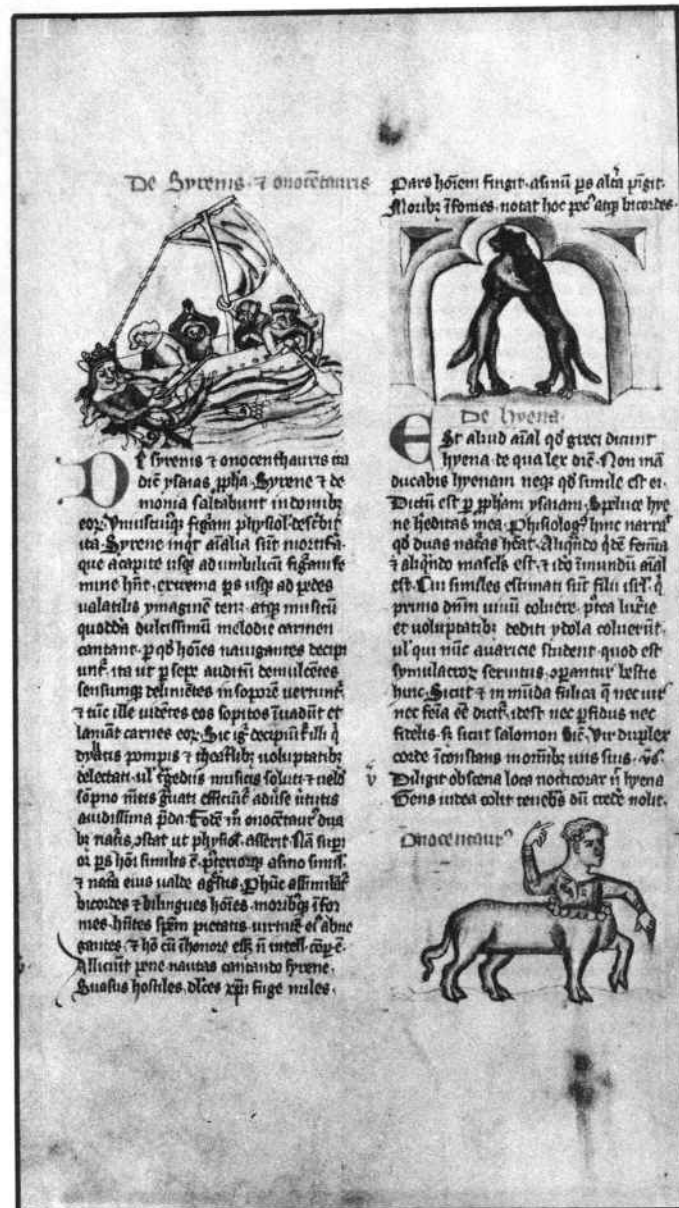 De Syrenis ⁊ onocētauris
De syrenis ⁊ onocenthauris ita
diē ysaias ꝓpha. Syrene ⁊ de
monia saltabunt in domibꝫ
eoꝝ. figām physiol.
ita. Syrene inqͥt aīalia sūt mortifa
que a capite usqꝫ ad umbilicū figām fe
mine hn̄t. extrema ps usqꝫ ad pedes
uolatilis ymaginē tenꝫ. atqꝫ musicū
quoddā dulcissimū melodie carmen
cantant. ꝑ qd̄ hoīes nauigantes decipi
unt. ita ut ꝑ sepe auditū demulcētes
sensumqꝫ in soporē uertunt.
⁊ tūc ille uidētes eos sopitos īuadūt et
laniāt carnes eoꝝ. Sic decipiūt illi q̄
pompis ⁊ uoluptatibꝫ
delectati. ul musicis soluti ⁊ uelđ
sōpno efficiūt aduse
auidissima p̄da. onocētauꝰ dua
bꝫ ut physiol. asserit. Nā supi
or ps hoī similis ē. asino simil.
⁊ natā eius ualde
bicordes ⁊ bilingues hoīes. moribꝫ īfor
mes. hn̄tes spēm pietatis. uirtutē eiꝰ abne
gantes. ⁊ hō cū ī honore n̄ intell.
Alliciūt pene nautas cantando syrene.
Suasus hostiles, dlces xp̄i fuge miles.
Pars hoīem fingit. asinū ps alta pīgit.
Moribꝫ īfomes. notat hoc atqꝫ bicordes.
De hyena.
Est aliud aīal qd̄ greci dicunt
hyena. de qua lex diē. Non mā
ducabis hyenam neqꝫ qd̄ simile est ei.
Dictū est ꝑ ꝓpham ysaiam. Spelūce hye
ne heditas mea. Physiologꝰ hinc narrat
qd̄ duas natās heāt. Aliqn̄do qd̄ē femīa
⁊ aliqn̄do masclꝰ est. ⁊ idō īmundū aīal
est. Cui similes estimati sūt filii isrl. q̄
primo dn̄m uiuū coluere. pꝰtea luxie
et uoluptatibꝫ dediti ydola coluerūt.
ul qui nūc auaricie student. quod est
symulacroꝝ seruitus. bestie
huic. Sicut ⁊ in mūda fulica q̄ nec uir
nec feīa eē dicit. idest nec ꝑfidus nec
fidelis. s; sicut salomon diē. Vir duplex
corde īconstans suis. v̄s.
Diligit obscena loca nocticorax hyena
Gens iudea colit tenebͣs dū crede nolit.
Onocentaurꝰ